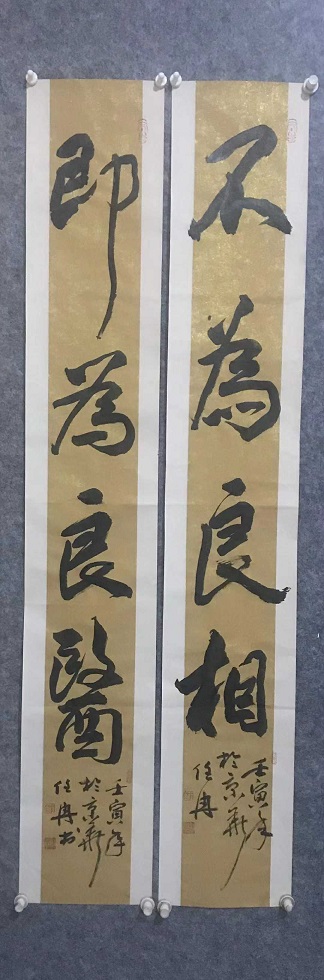 不為良相
壬寅年
於京華
任冉
即為良醫
壬寅年
於京華
任冉书